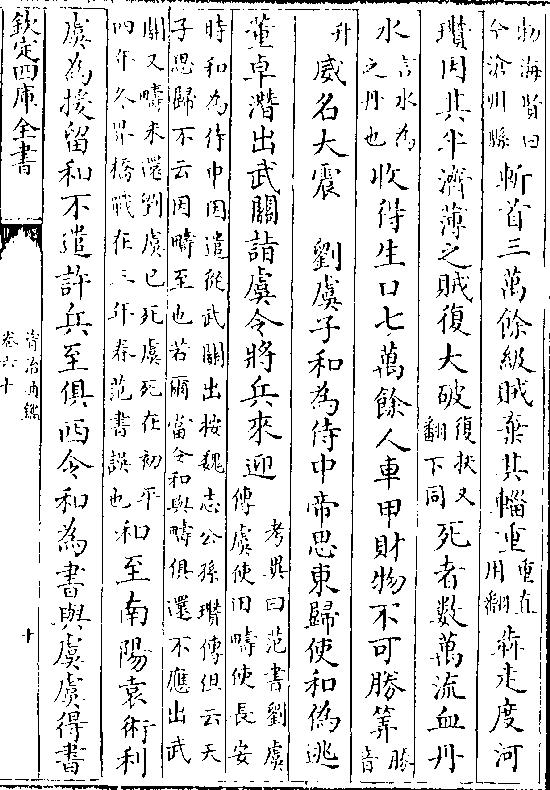 勃海賢曰
今滄州縣
斬首三萬餘級賊棄其輜重
重直
用翻
奔走度河
瓚因其半濟薄之賊復大破
復扶又
翻下同
死者數萬流血丹
水
言水為
之丹也
收得生口七萬餘人車甲財物不可勝筭
勝
音
升
威名大震　劉虞子和為侍中帝思東歸使和偽逃
董卓潛出武關詣虞令將兵來迎
考異曰范書劉虞
傳虞使田疇使長安
時和為侍中因遣從武關出按魏志公孫瓚傳但云天
子思歸不云因疇至也若爾當令和與疇俱還不應出武
關又疇未還劉虞已死虞死在初平
四年冬界橋戰在三年春范書誤也
和至南陽袁術利
虞為援留和不遣許兵至俱西令和為書與虞虞得書
欽定四庫全書
資治通鑑
卷六十
十